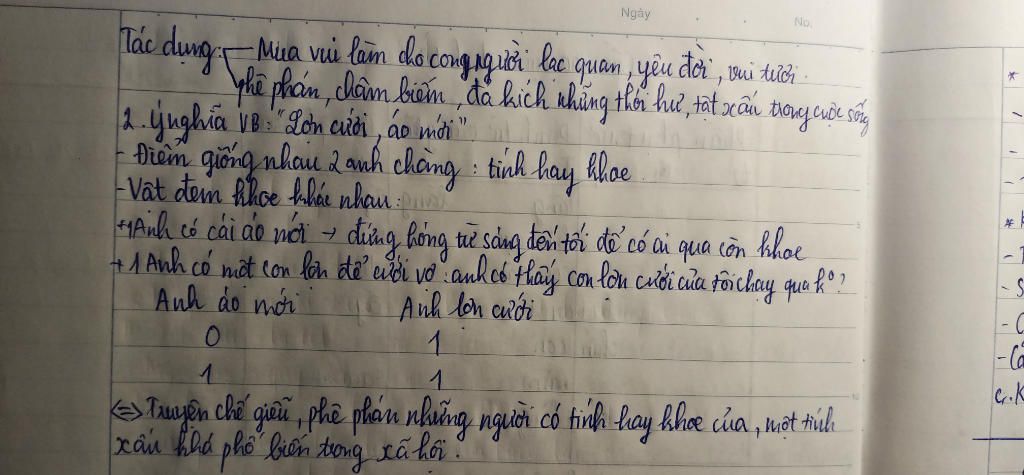 Ngày No.
Tác dụng: - Mua vui làm cho con người lạc quan, yêu đời, vui tươi.
phê phán, châm biếm, đả kích những thói hư, tật xấu trong cuộc sống
2. Ý nghĩa VB: "Lợn cưới, áo mới"
- Điểm giống nhau 2 anh chàng: tính hay khoe.
- Vật đem khoe khác nhau:
+ 1 Anh có cái áo mới → đứng hóng từ sáng đến tối để có ai qua còn khoe
+ 1 Anh có một con lợn để cưới vợ: anh có thấy con lợn cưới của tôi chạy qua k°?
Anh áo mới Anh lợn cưới
0 1
1 1
<=> Truyện chế giễu, phê phán những người có tính hay khoe của, một tính
xấu khá phổ biến trong xã hội.
*
-
-
-
*
-
- S
-
- Cá
c. K